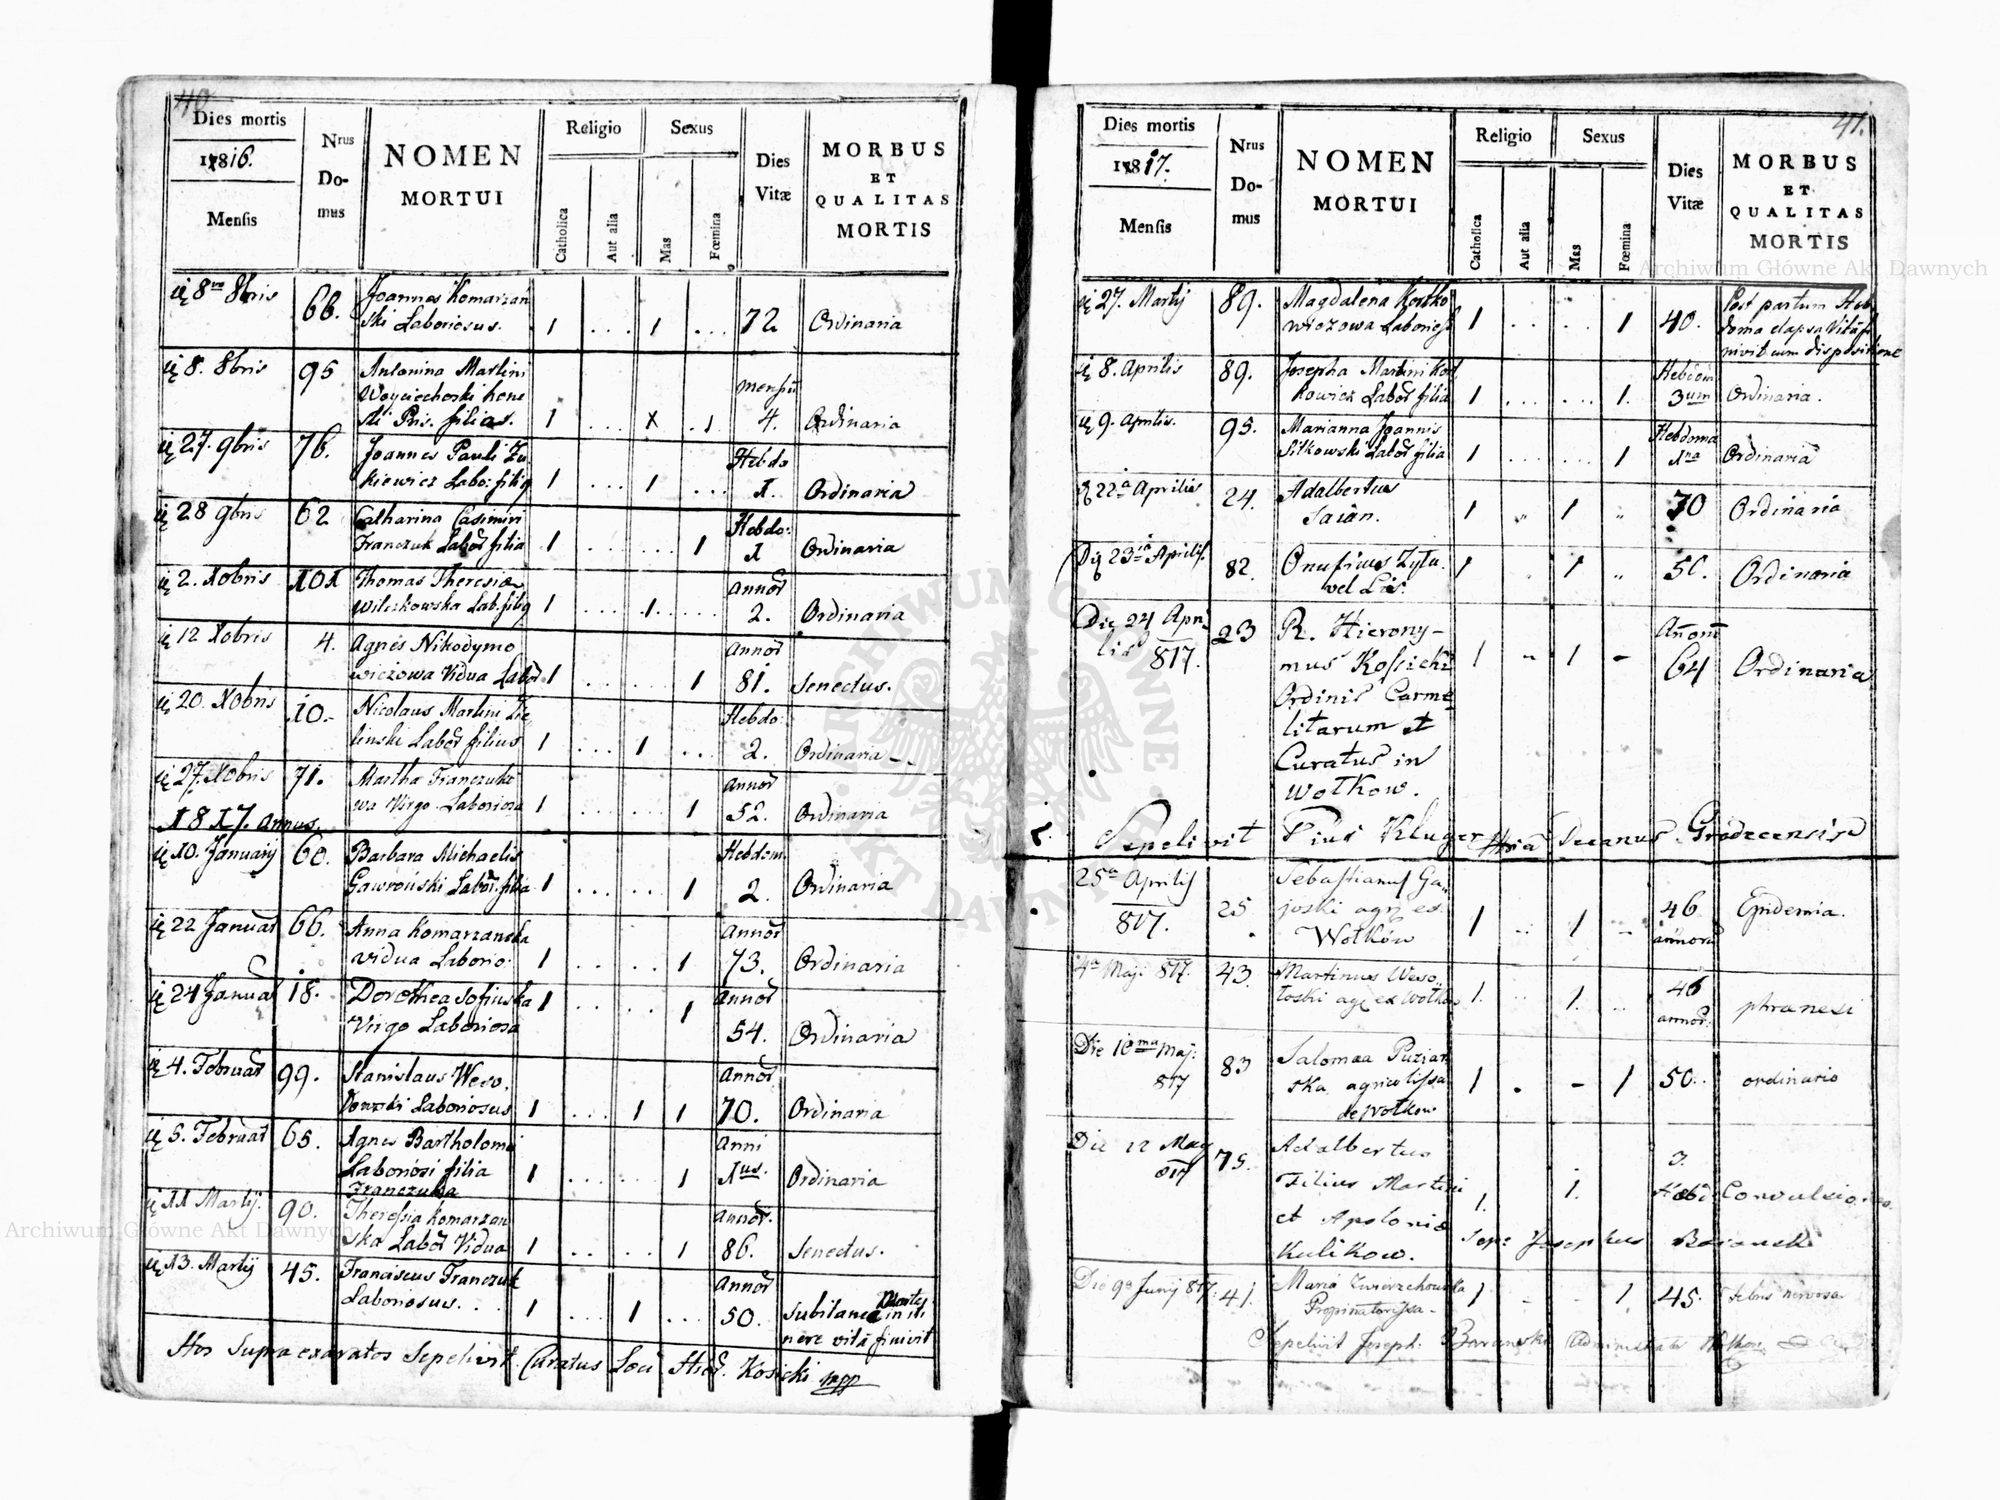 40
Dies mortis
1816.
Mensis
Nrus
Do-
mus
NOMEN
MORTUI
Religio
Catholica
Aut alia
Sexus
Mas
Fœmina
Dies
Vitæ
MORBUS
ET
QUALITAS
MORTIS
8va 8bris 66. Joannes Komarzań
ski Laboriosus. 1 ... 1 ... 72. Ordinaria
8. 8bris 95 Antonina Martini
Woyciechoski hone mensiũ
sti Pris. filias. 1 ... x . 1 4. Ordinaria
27. 9bris 76. Joannes Pauli Zu Hebdo
kiewicz Labo: filiq 1 ... 1 ... 1. Ordinaria
28 9bris 62 Catharina Casimiri Hebdo:
Franczuk Labor filia 1 ... ... 1 1 Ordinaria
2. Xobris 101 Thomas Theresiæ annor
Wilczkowska Lab. filiq 1 .... 1. ... 2. Ordinaria
12 Xobris 4. Agnes Nikodymo annor
wiczowa Vidua Labor 1 ..... 1 81. Senectus.
20. Xobris 10.- Nicolaus Martini Zie Hebdo:
linski Labor filius 1 ... 1 ... 2. Ordinaria
27. Xobris 71. Martha Franczuko annor
wa Virgo Laboriosa 1 ..... 1 52. Ordinaria
1817. annus.
10. January 60. Barbara Michaelis Hebdom
Gawroński Labor. filia 1 ..... 1 2. Ordinaria
22 Januar 66. Anna Komarzanska annor
vidua Laborio. 1 ..... 1 73. Ordinaria
24 Januar 18. Dorothea Sofinska 1 ..... 1 annor
Virgo Laboriosa 54. Ordinaria
4. Februar 99. Stanislaus Weso. annor
Laboriosus 1 ... 1 1 70. Ordinaria
5. Februar 65. Agnes Bartholomei anni
Laboriosi filia 1 ..... 1 1us. Ordinaria
Franczuka
11 Martij. 90. Theresia Komarzan annor.
ska Labor Vidua 1 .. .. 1 86. Senectus.
13. Martij 45. Franciscus Franczuk annor
Laboriosus. . . 1 .. 1 ... 50. Subitanea Morte in iti
nere vitā finivit
Hos Supra exaratos Sepelivit Curatus Loci Hier. Kosicki mpp
41.
Dies mortis
1817.
Mensis
Nrus
Do-
mus
NOMEN
MORTUI
Religio
Catholica
Aut alia
Sexus
Mas
Fœmina
Dies
Vitæ
MORBUS
ET
QUALITAS
MORTIS
27. Martij 89. Magdalena Kostko Post partum Heb
wiczowa Laborios 1 .. .. 1 40. doma elapsa Vitā fi
nivit cum dispositione
8. Aprilis 89. Josepha Martini Kost Hebdom
kowicz Labor filia 1 ... ... 1. 3um Ordinaria.
9. Aprilis. 95. Marianna Joannis Hebdoma
Sitkowski Labor filia 1 ... ... 1 1na Ordinaria
22a Aprilis 24. Adalbertus
Saian. 1 " 1 " 70 Ordinaria
23ia Aprilis 82. Onufrius Zytu.
vel Lis. 1 . 1 " 50. Ordinaria
Die 24 Apri
lis 817. 23 R. Hierony- Añoru
mus Kosicki 1 - 1 - 64 Ordinaria
Ordinis Carme
litarum et
Curatus in
Wołkow.
Sepelivit Pius Kluger Decanus Grodecensis
25a Aprilis 817. 25 Sebastianus Ga..
joski agr. ex 1 .. 1 - 46 Epidemia.
Wołków annoru
4a Maji 817. 43. Martinus Weso..
łoski agr ex Wołkow 1. .. 1. .. 46 annor. phranesi
Die 10ma Maj:
817 83 Salomea Puziar
ska agricolissa 1 . - 1 50. ordinario
de Wołkow
Die 12 May
817 75. Adalbertus 3.
Filius Martini 1. 1. Hebd: Convulsio
et Apolonia
Kulikow. Sep: Josephus
Die 9a Junij 817: 41. Maria Zwierzchowska 1 - - 1 45. Febris nervosa
Propinatorissa -
Sepelivit Joseph. Baranski Administrator
Archiwum Główne Akt Dawnych
Archiwum Główne Akt Dawnych
ARCHIWUM GŁÓWNE AKT DAWNYCH